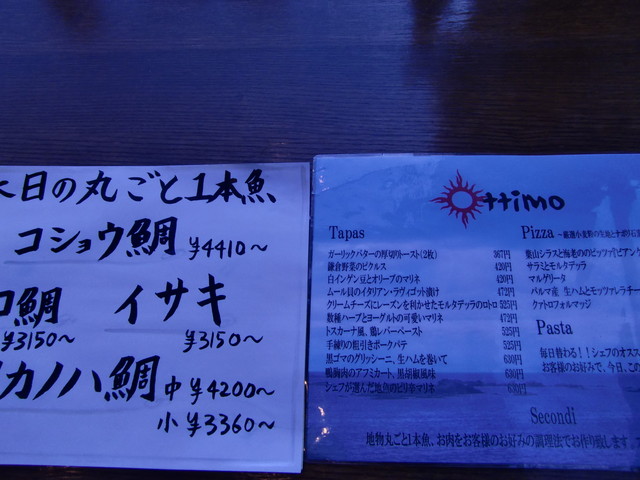 日の丸ごと1本魚
コショウ鯛 ¥4410〜
鯛 イサキ
¥3150〜 ¥3150〜
カノハ鯛 中 ¥4200〜
小 ¥3360〜
Ottimo
Tapas
ガーリックバターの厚切りトースト(2枚) 367円
鎌倉野菜のピクルス 420円
白インゲン豆とオリーブのマリネ 420円
ムール貝のイタリアン・ラヴィゴット漬け 472円
クリームチーズにレーズンを利かせたモルタデッラのトロ 525円
数種ハーブとヨーグルトの可愛いマリネ 472円
トスカーナ風、鶏レバーペースト 525円
手練りの粗引きポークパテ 525円
黒ゴマのグリッシーニ、生ハムを巻いて 630円
鴨胸肉のアフミカート、黒胡椒風味 630円
シェフが選んだ地魚のピリ辛マリネ 630円
Pizza 〜厳選小麦粉の生地とナポリ石
葉山シラスと海老ののピッツァ(ビアンケ
サラミとモルタデッラ
マルゲリータ
パルマ産 生ハムとモッツァレラチー
クァトロフォルマッジ
Pasta
毎日替わる!!シェフのオス
お客様のお好みで、今日、この
Secondi
地物丸ごと1本魚、お肉をお客様のお好みの調理法でお作り致します。